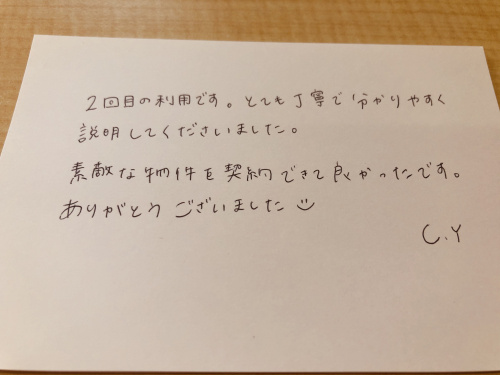 2回目の利用です。とても丁寧で分かりやすく
説明してくださいました。
素敵な物件を契約できて良かったです。
ありがとうございました
C.Y